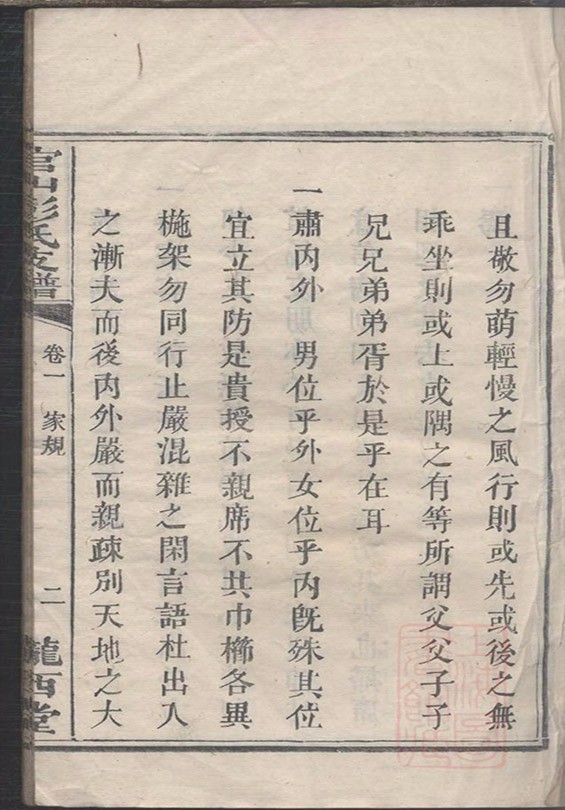 且敬勿萌輕慢之風行則或先或後之無
乖坐則或上或隅之有等所謂父父子子
兄兄弟弟胥於是乎在耳
一肅內外 男位乎外女位乎內旣殊其位
宜立其防是貴授不親席不共巾櫛各異
椸架勿同行止嚴混雜之閑言語杜出入
之漸夫而後內外嚴而親疎別天地之大
官山彭氏支譜
卷一 家規
二
隴西堂